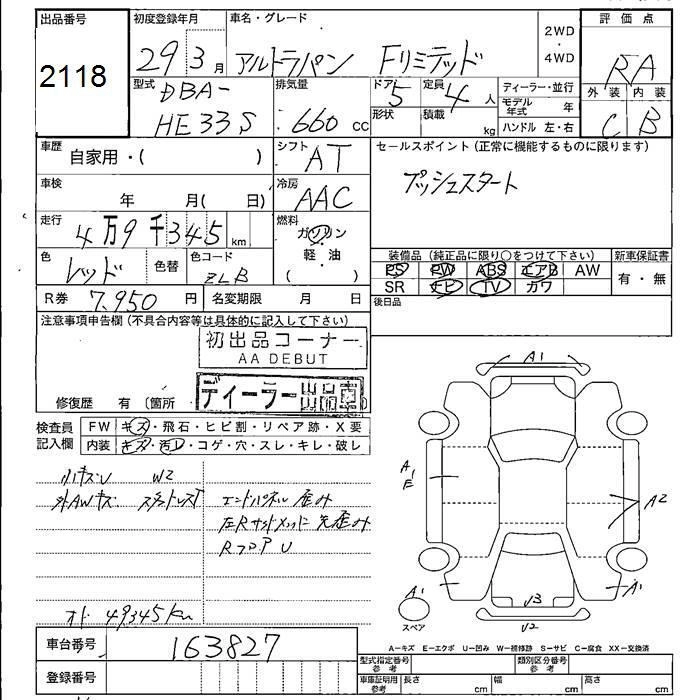 出品番号 初度登録年月 車名・グレード 評価点
2118 29 3月 アルトラパン Fリミテッド 2WD・4WD RA
型式 DBA-HE33S 排気量 660 cc ドア 5 定員 4人 ディーラー・並行 外装 内装
形状 積載 kg モデル年式 年 ハンドル 左・右 C B
車歴 自家用・( ) シフト AT セールスポイント (正常に機能するものに限ります)
車検 年 月( 日) 冷房 AAC プッシュスタート
走行 4万9千345km 燃料 ガソリン
軽・油
( )
色 レッド 色替 色コード ZLB 装備品 (純正品に限り○をつけて下さい) 新車保証書
PS PW ABS エアB AW 有・無
SR ナビ TV カワ
R券 7,950円 名変期限 月 日 後日品
注意事項申告欄 (不具合内容等は具体的に記入して下さい)
初出品コーナー
AA DEBUT
ディーラー出品車
修復歴 有 〔箇所
検査員記入欄 FW キズ・飛石・ヒビ割・リペア跡・X要
内装 キズ・汚レ・コゲ・穴・スレ・キレ・破レ
小キズU W2
外AWキズ
エンドパネル 歪み
先歪み
RフロアU
オド 49345km
A1
A1
E
A2
A1
A1
U3
U2
スペア
A-キズ E-エクボ U-凹み W-補修跡 S-サビ C-腐食 XX-交換済
車台番号 163827 型式指定番号 参考 類別区分番号 参考
登録番号 車庫証明用 参考 長さ cm 幅 cm 高さ cm